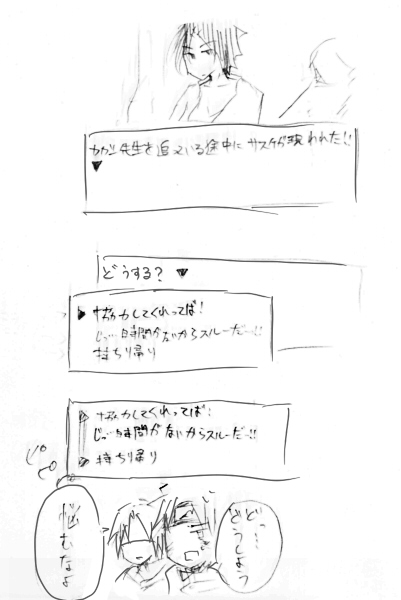 カカシ先生を追っている途中にサスケが現われた!!
▼
どうする? ▼
▶ 協力してくれってば!
じっ…時間がないからスルーだーっ!!
持ち帰り
▶ 協力してくれってば!
じっ…時間がないからスルーだーっ!!
▶ 持ち帰り
ピピ
どっ…
どうしよう
悩むなよ